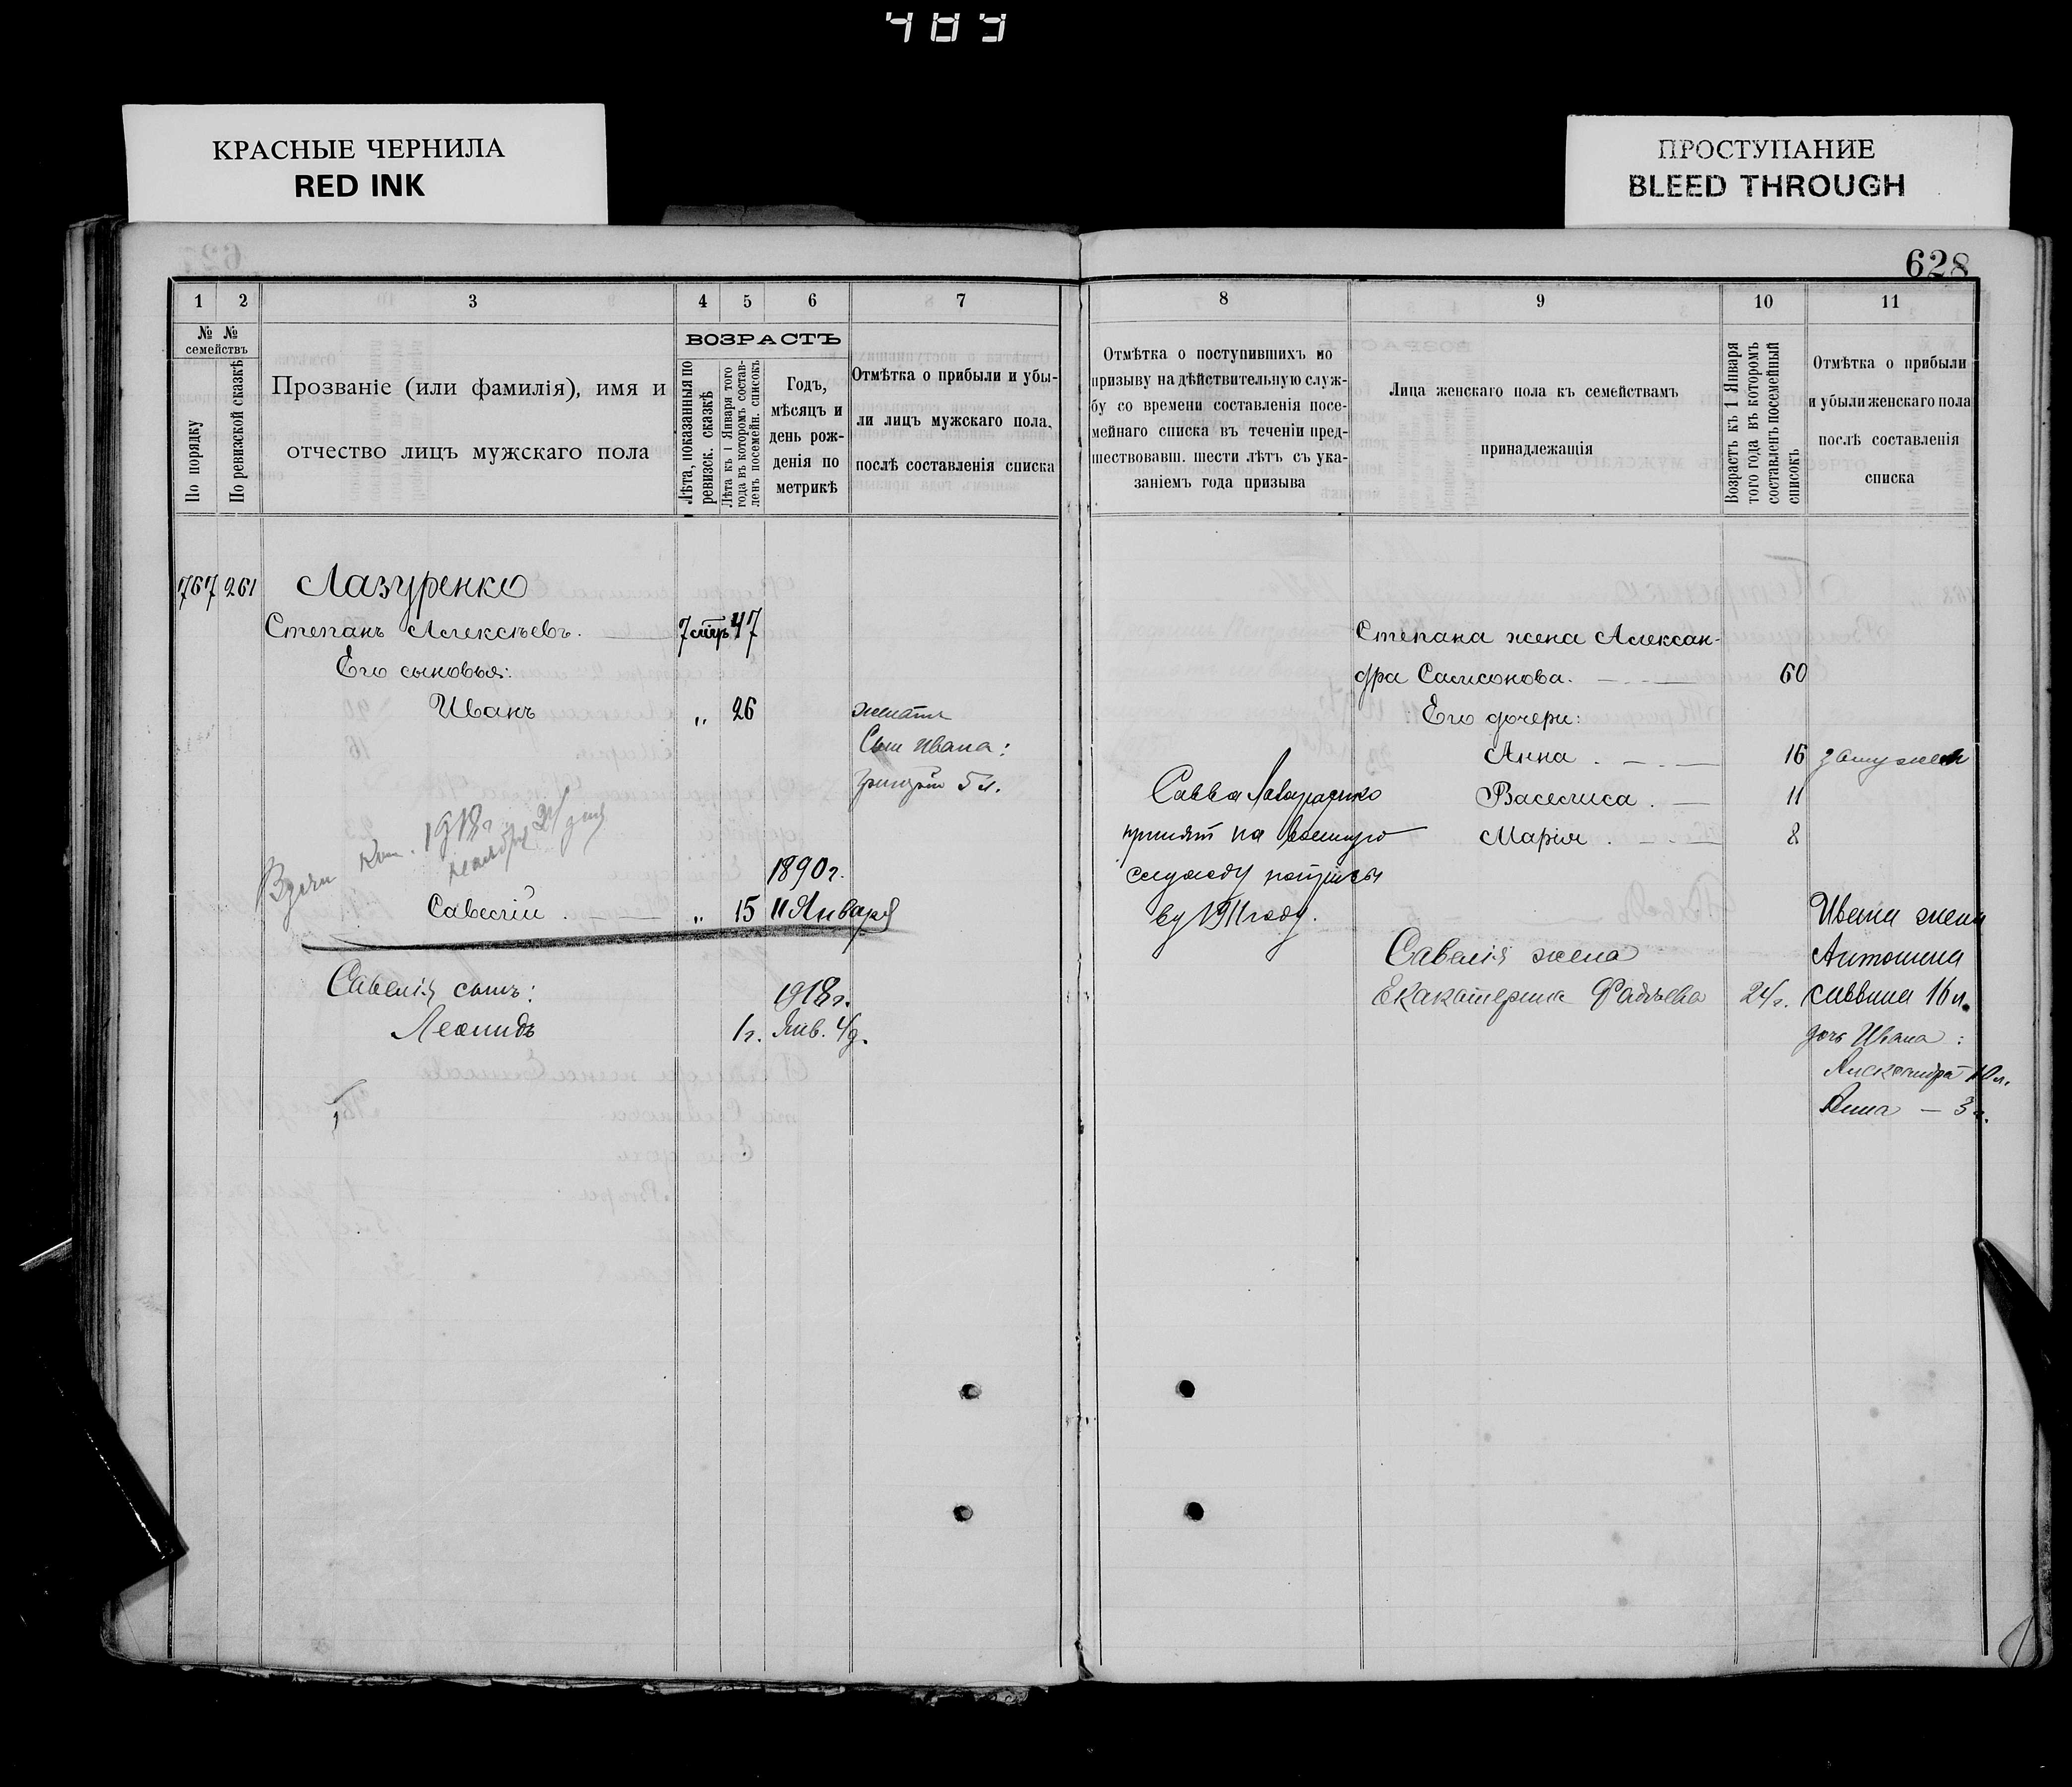 489
КРАСНЫЕ ЧЕРНИЛА
RED INK
ПРОСТУПАНИЕ
BLEED THROUGH
628
1 2 3 4 5 6 7
№ № семействъ
По порядку
По ревизской сказкѣ
Прозваніе (или фамилія), имя и
отчество лицъ мужскаго пола
ВОЗРАСТЪ
Лѣта, показанныя по
ревизск. сказкѣ
Лѣта къ 1 Января того
года въ котором состав-
ленъ посемейн. списокъ
Годъ,
мѣсяцъ и
день рож-
денія по
метрикѣ
Отмѣтка о прибыли и убы-
ли лицъ мужскаго пола,
послѣ составленія списка
767 261 Лазуренко
Степанъ Алексѣевъ. 47
Его сыновья:
Иванъ „ 26 женатъ
Сын Ивана:
Григорій 5 л.
1918 г.
1890 г.
Савелій „ 15 11 Января
Савелія сынъ: 1918 г.
Леонидъ 1 г. Янв. 4 д.
8 9 10 11
Отмѣтка о поступившихъ по
призыву на дѣйствительную служ-
бу со времени составленія посе-
мейнаго списка въ теченіи пред-
шествовавш. шести лѣтъ съ ука-
заніемъ года призыва
Лица женскаго пола къ семействамъ
принадлежащія
Возрастъ къ 1 Января
того года въ которомъ
составленъ посемейный
списокъ
Отмѣтка о прибыли
и убыли женскаго пола
послѣ составленія
списка
Степана жена Алексан-
дра Самсонова. 60
Его дочери:
Анна 16 замужем
Савва Лазуренко
Василиса 11
принят на военную
Марія 8
службу
ву 1911 году.
Ивана жена
Савелія жена Антонина
Екакатерина Фадѣева 24 г. саввина 16 л.
дочь Ивана:
Александра 10 л.
Анна — 3 г.